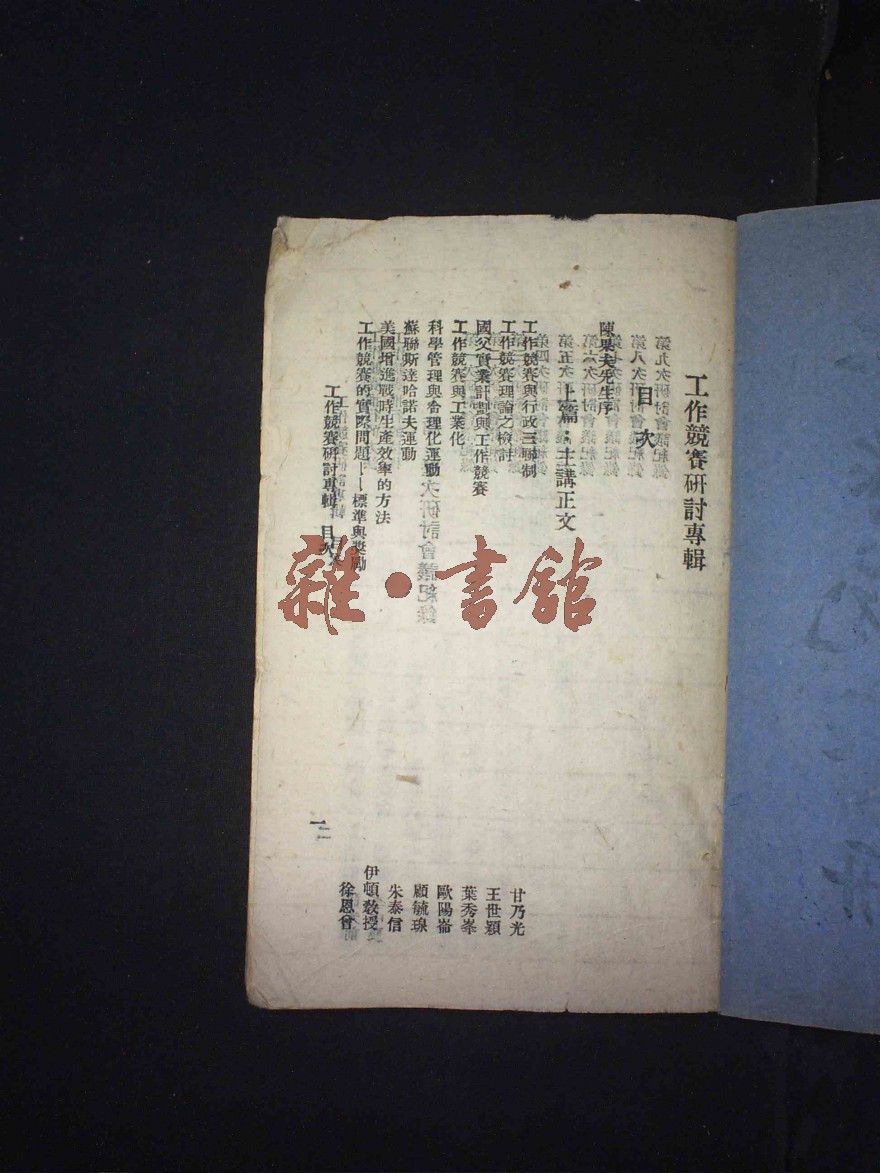 工作競賽研討專輯
目次
陳果夫先生序
上篇：主講正文
工作競賽與行政三聯制 甘乃光
工作競賽理論之檢討 王世穎
國父實業計劃與工作競賽 葉秀峯
工作競賽與工業化 歐陽崙
科學管理與合理化運動 顧毓瑔
蘇聯斯達哈諾夫運動 朱泰信
美國增進戰時生產效率的方法 伊頓教授
工作競賽的實際問題——標準與獎勵 徐恩曾
工作競賽研討專輯 目次
一
雜·書館